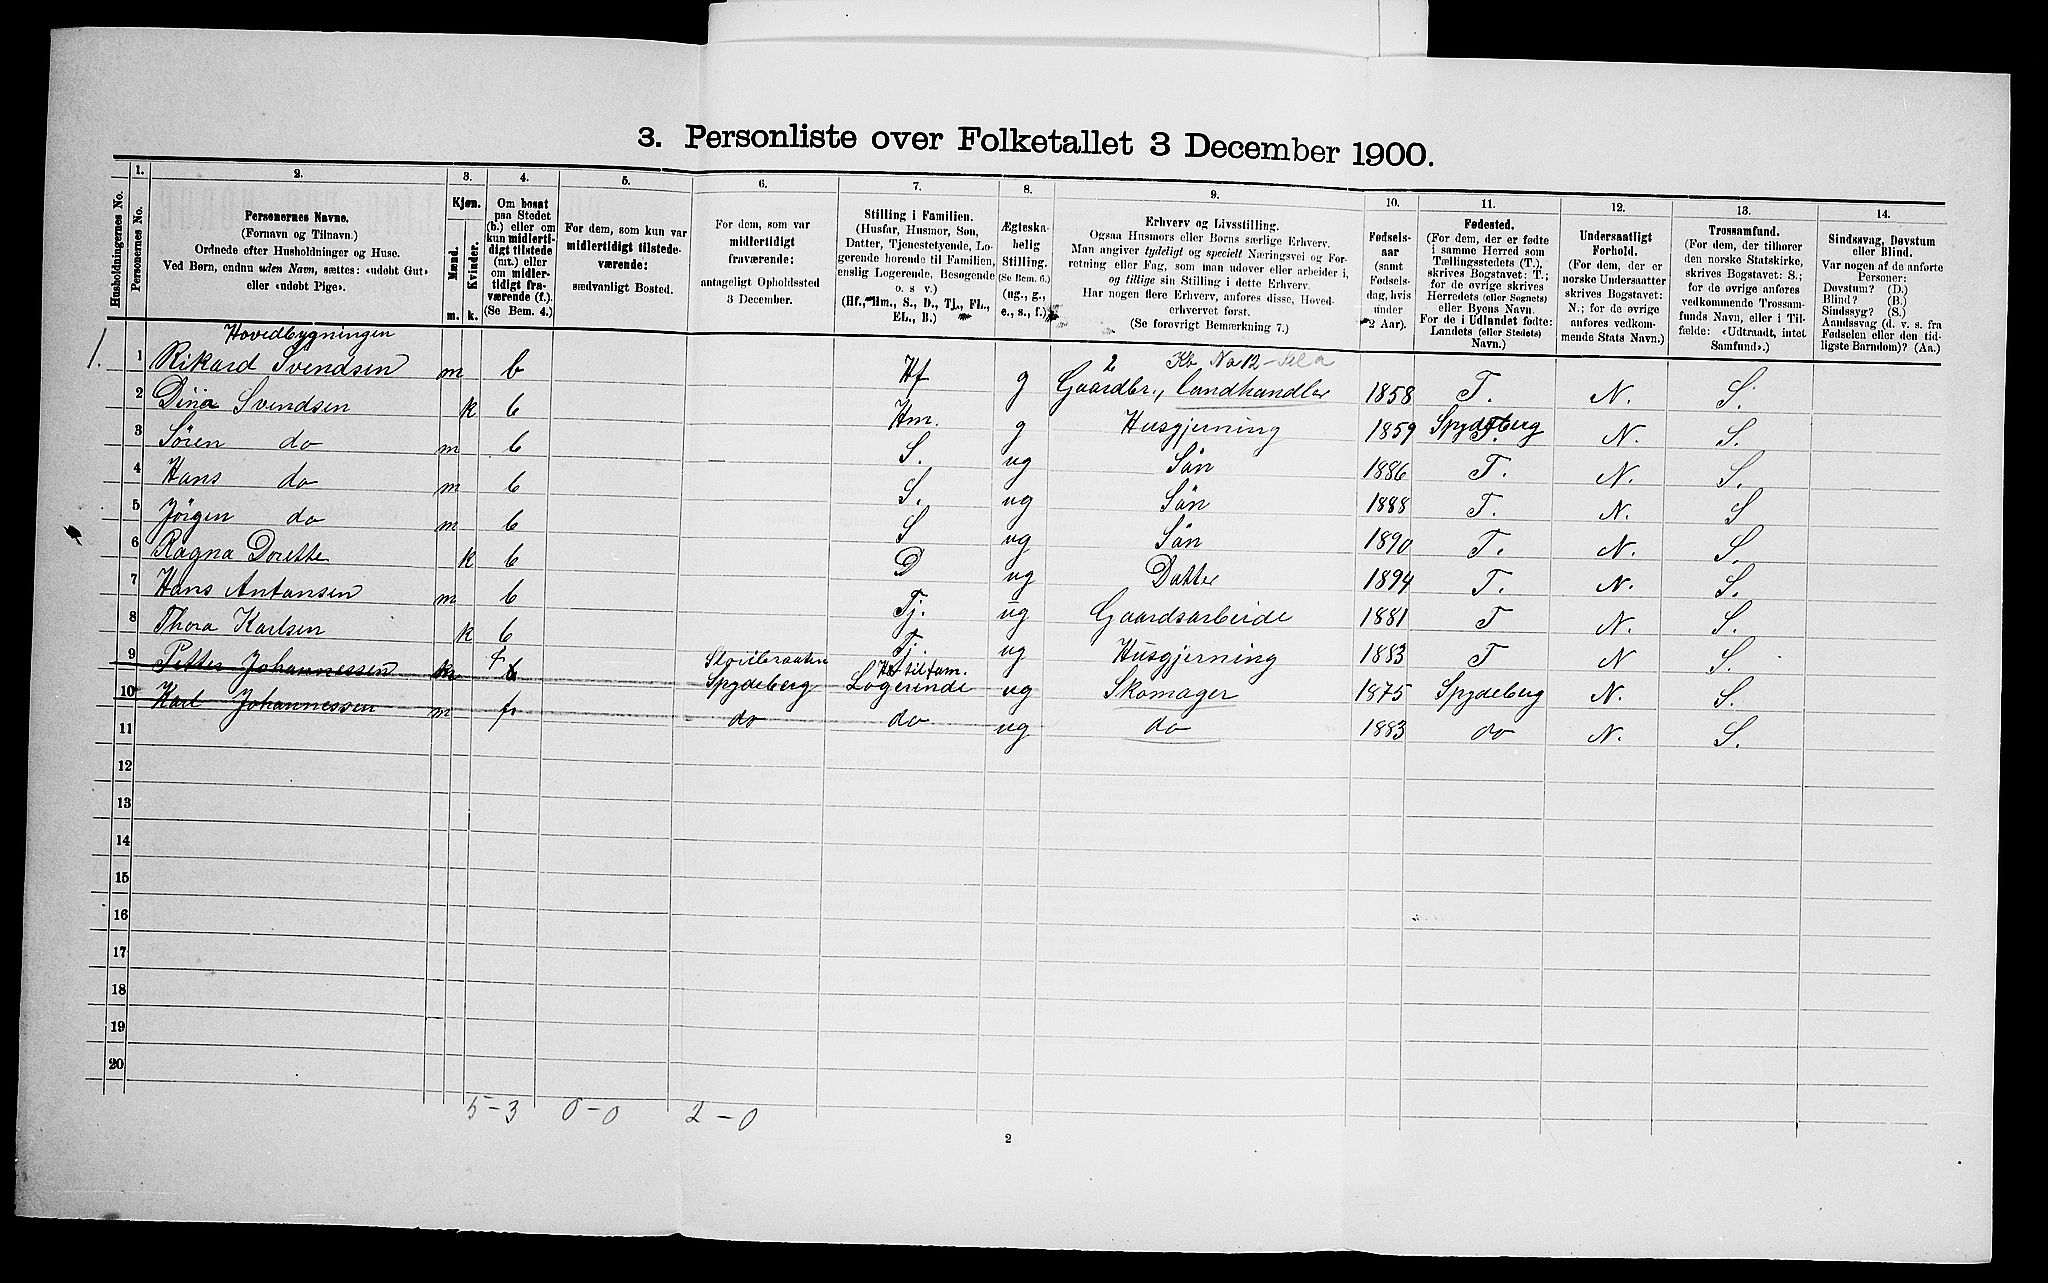 3. Personliste over Folketallet 3 December 1900.
Husholdningernes No.
1. Personernes No.
2. Personernes Navne.
(Fornavn og Tilnavn.)
Ordnede efter Husholdninger og Huse.
Ved Børn, endnu uden Navn, sættes: «udøbt Gut»
eller «udøbt Pige».
3. Kjøn.
Mænd. m.
Kvinder. k.
4. Om bosat
paa Stedet
(b.) eller om
kun midlerti-
digt tilstede
(mt.) eller
om midler-
tidigt fra-
værende (f.).
(Se Bem. 4.)
5. For dem, som kun var
midlertidigt tilstede-
værende:
sædvanligt Bosted.
6. For dem, som var
midlertidigt
fraværende:
antageligt Opholdssted
3 December.
7. Stilling i Familien.
(Husfar, Husmor, Søn,
Datter, Tjenestetyende, Lo-
gerende hørende til Familien,
enslig Logerende, Besøgende
o. s v.)
(Hf., Hm., S., D., Tj., FL.,
EL., B.)
8. Ægteska-
belig
Stilling.
(Se Bem. 6.)
(ug., g.,
e., s., f.)
9. Erhverv og Livsstilling.
Ogsaa Husmors eller Børns særlige Erhverv.
Man angiver tydeligt og specielt Næringsvei og For-
retning eller Fag, som man udøver eller arbeider i,
og tillige sin Stilling i dette Erhverv.
Har nogen flere Erhverv, anføres disse, Hoved-
erhvervet først.
(Se forøvrigt Bemærkning 7.)
10. Fødsels-
aar
(samt
Fødsels-
dag, hvis
under
2 Aar).
11. Fødested.
(For dem, der er fødte
i samme Herred som
Tællingsstedets (T.),
skrives Bogstavet: T.;
for de øvrige skrives
Herredets (eller Sognets)
eller Byens Navn.
For de i Udlandet fødte:
Landets (eller Stedets)
Navn.)
12. Undersaatligt
Forhold.
(For dem, der er
norske Undersaatter
skrives Bogstavet:
N.; for de øvrige
anføres vedkom-
mende Stats Navn.)
13. Trossamfund.
(For dem, der tilhører
den norske Statskirke,
skrives Bogstavet: S.;
for de øvrige anføres
vedkommende Trossam-
funds Navn, eller i Til-
fælde: «Udtraadt, intet
Samfund».)
14. Sindssvag, Døvstum
eller Blind.
Var nogen af de anførte
Personer:
Døvstum? (D.)
Blind? (B.)
Sindssyg? (S.)
Aandssvag (d. v. s. fra
Fødselen eller den tid-
ligste Barndom)? (Aa.)
Hovedbygningen
2 Kb No 12
1. 1 Rikard Svendsen m b Hf g Gaardbr., Landhandler 1858 T. N. S.
2 Dina Svendsen k b Hm. g Husgjerning 1859 Spydeberg T. N. S.
3 Sören do m b S. ug Sön 1886 T. N. S.
4 Hans do m b S. ug Sön 1888 T. N. S
5 Jörgen do m b S ug Sön 1890 T. N. S.
6 Ragna Dorette k b D ug Datter 1894 T. N. S.
7 Hans Antonsen m b Tj. ug Gaardsarbeide 1881 T N. S.
8 Thora Karlsen k b Tj. ug Husgjerning 1883 T N S.
9 Petter Johannessen m f Spydeberg Logerende Hør til fam. ug Skomager 1875 Spydeberg N. S.
10 Karl Johannessen m f. do do ug do 1883 do N. S.
11
12
13
14
15
16
17
18
19
20
5-3 0-0 2-0
2